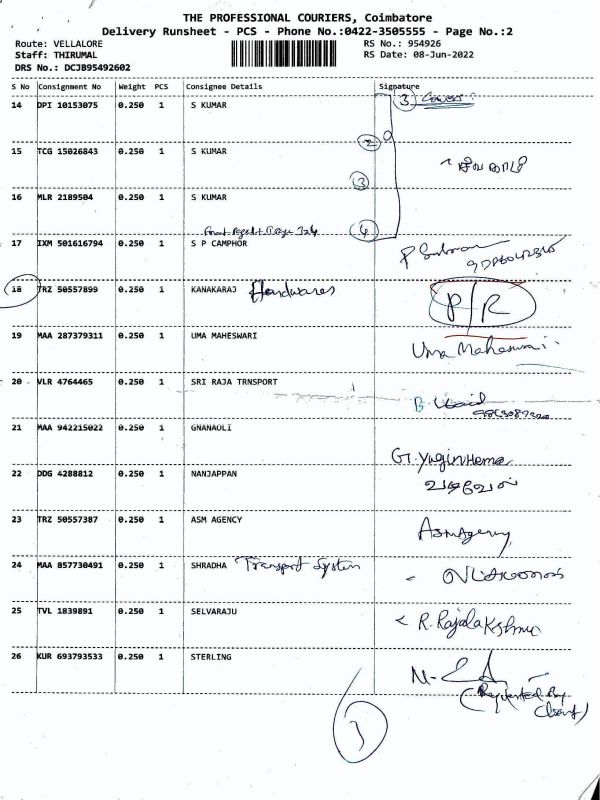 THE PROFESSIONAL COURIERS, Coimbatore
Delivery Runsheet - PCS - Phone No.:0422-3505555 - Page No.:2
Route: VELLALORE
RS No.: 954926
Staff: THIRUMAL
RS Date: 08-Jun-2022
DRS No.: DCJB95492602
S No Consignment No Weight PCS Consignee Details Signature
14 DPI 10153075 0.250 1 S KUMAR 3 Covers
15 TCG 15026843 0.250 1 S KUMAR 2
16 MLR 2189504 0.250 1 S KUMAR
17 IXM 501616794 0.250 1 S P CAMPHOR
18 TRZ 50557899 0.250 1 KANAKARAJ Hardwares P/R
19 MAA 287379311 0.250 1 UMA MAHESWARI Uma Maheswari
20 VLR 4764465 0.250 1 SRI RAJA TRNSPORT
21 MAA 942215022 0.250 1 GNANAOLI G. YuginHema
22 DDG 4288812 0.250 1 NANJAPPAN வடிவேல்
23 TRZ 50557387 0.250 1 ASM AGENCY Asm Agency
24 MAA 857730491 0.250 1 SHRADHA Transport System
25 TVL 1839891 0.250 1 SELVARAJU R. Rajalakshmi
26 KUR 693793533 0.250 1 STERLING
(Requested By
Client)